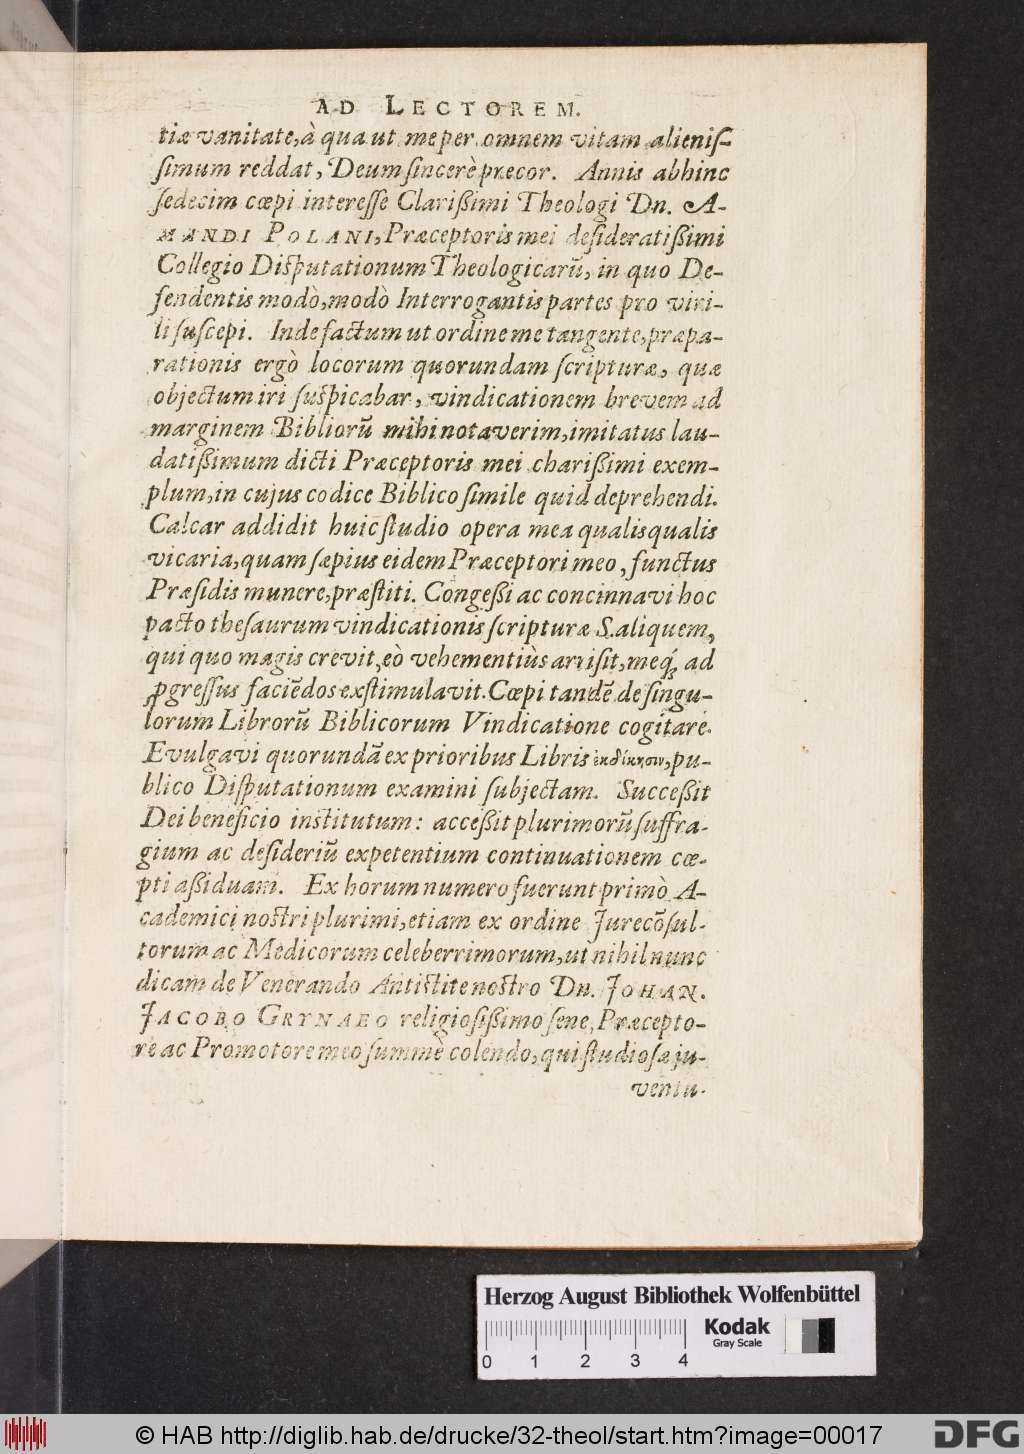 AD LECTOREM.
tiæ vanitate, à qua ut me per omnem vitam alienis-
simum reddat, Deum sincerè precor. Annis abhinc
sedecim cœpi interesse Clarißimi Theologi Dn. A-
MANDI POLANI, Præceptoris mei desideratißimi
Collegio Disputationum Theologicarũ, in quo De-
fendentis modò, modò Interrogantis partes pro viri-
li suscepi. Inde factum ut ordine me tangente, præpa-
rationis ergò locorum quorundam scripturæ, quæ
objectum iri suspicabar, vindicationem brevem ad
marginem Bibliorũ mihi notaverim, imitatus lau-
datißimum dicti Præceptoris mei charißimi exem-
plum, in cujus codice Biblico simile quid deprehendi.
Calcar addidit huic studio opera mea qualisqualis
vicaria, quam sæpius eidem Præceptori meo, functus
Præsidis munere, præstiti. Congeßi ac concinnavi hoc
pacto thesaurum vindicationis scripturæ S. aliquem,
qui quo magis crevit, eò vehementiùs arrisit, meq́; ad
ꝓgressus faciẽdos exstimulavit. Cœpi tandẽ de singu-
lorum Librorũ Biblicorum Vindicatione cogitare.
Evulgavi quorundã ex prioribus Libris ἐκδίκησιν, pu-
blico Disputationum examini subjectam. Succeßit
Dei beneficio institutum: acceßit plurimorũ suffra-
gium ac desideriũ expetentium continuationem cœ-
pti aßiduam. Ex horum numero fuerunt primò A-
cademici nostri plurimi, etiam ex ordine Jurecõsul-
torum ac Medicorum celeberrimorum, ut nihil nunc
dicam de Venerando Antistite nostro Dn. JOHAN.
JACOBO GRYNAEO religiosißimo sene, Præcepto-
re ac Promotore meo summè colendo, qui studiosæ ju-
ventu-
Herzog August Bibliothek Wolfenbüttel
Kodak
Gray Scale
0 1 2 3 4
© HAB http://diglib.hab.de/drucke/32-theol/start.htm?image=00017
DFG